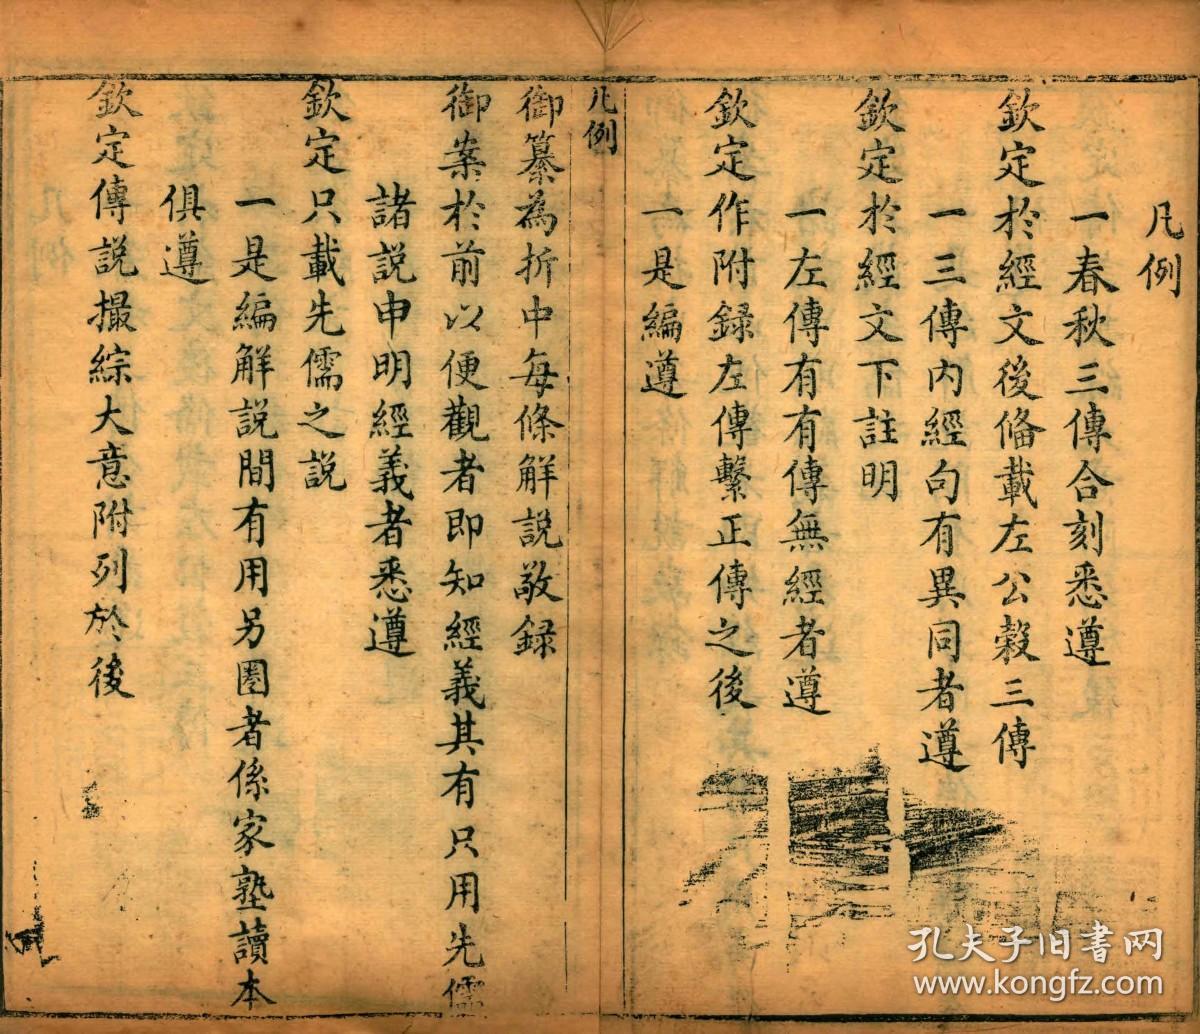 凡例
一春秋三傳合刻悉遵
欽定於經文後偹載左公穀三傳
一三傳內經句有異同者遵
欽定於經文下註明
一左傳有有傳無經者遵
欽定作附録左傳繫正傳之後
一是編遵
凡例
御纂為折中每條解説敬録
御案於前以便觀者即知經義其有只用先儒
諸説申明經義者悉遵
欽定只載先儒之説
一是編解説間有用另圏者係家塾讀本
俱遵
欽定傳説撮綜大意附列於後
孔夫子旧书网
www.kongfz.com